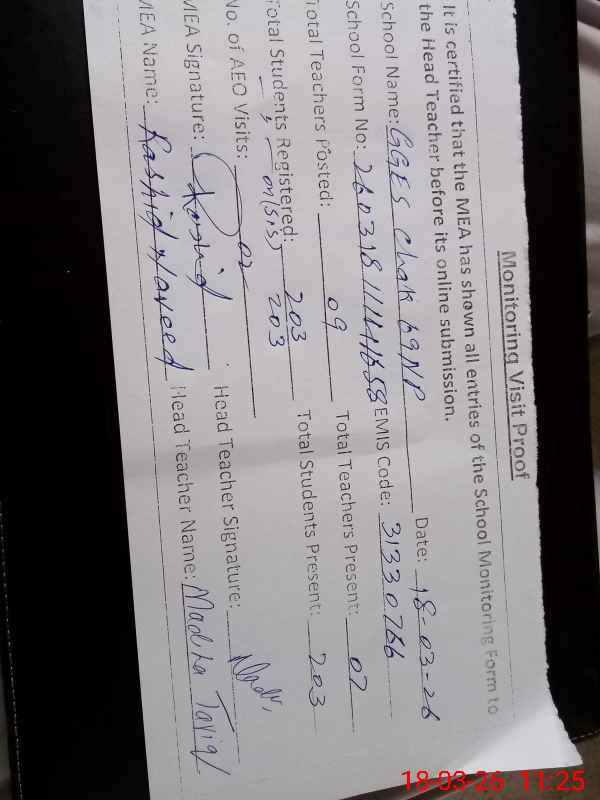 Monitoring Visit Proof
It is certified that the MEA has shown all entries of the School Monitoring Form to
the Head Teacher before its online submission.
School Name: GGES Chak 69NP Date: 18-03-26
School Form No: EMIS Code: 31330766
Total Teachers Posted: 09 Total Teachers Present: 07
Total Students Registered: 203 Total Students Present: 203
on (SIS) 203
No. of AEO Visits: 02
MEA Signature: Rashid Head Teacher Signature:
MEA Name: Rashid Naveed Head Teacher Name: Madiha Tariq
18-03-26 11:25